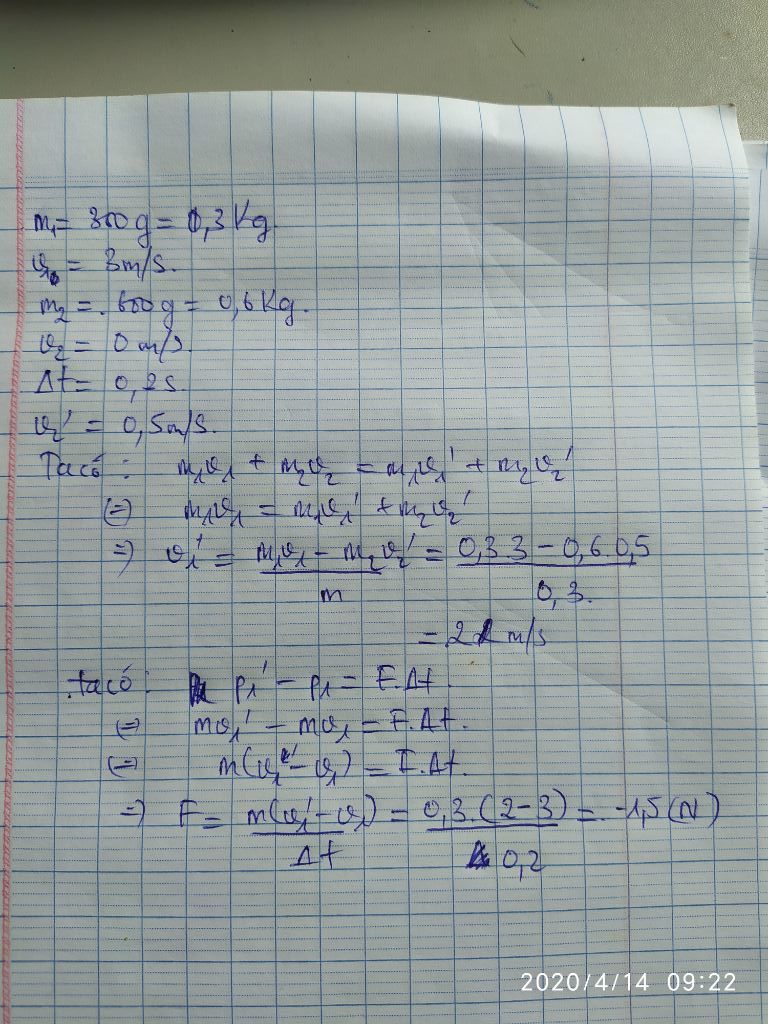 m₁ = 300g = 0,3 Kg.
v₁ = 3m/s.
m₂ = 600g = 0,6 Kg.
v₂ = 0 m/s.
Δt = 0,2s.
v₂' = 0,5m/s.
Ta có : m₁v₁ + m₂v₂ = m₁v₁' + m₂v₂'
(=) m₁v₁ = m₁v₁' + m₂v₂'
=) v₁' = m₁v₁ - m₂v₂' / m = 0,3.3 - 0,6.0,5 / 0,3.
= 2 m/s
ta có : p₁' - p₁ = F.Δt.
(=) mv₁' - mv₁ = F.Δt.
(=) m(v₁' - v₁) = F.Δt.
=) F = m(v₁' - v₁) / Δt = 0,3.(2-3) / 0,2 = -1,5 (N)
2020/4/14 09:22